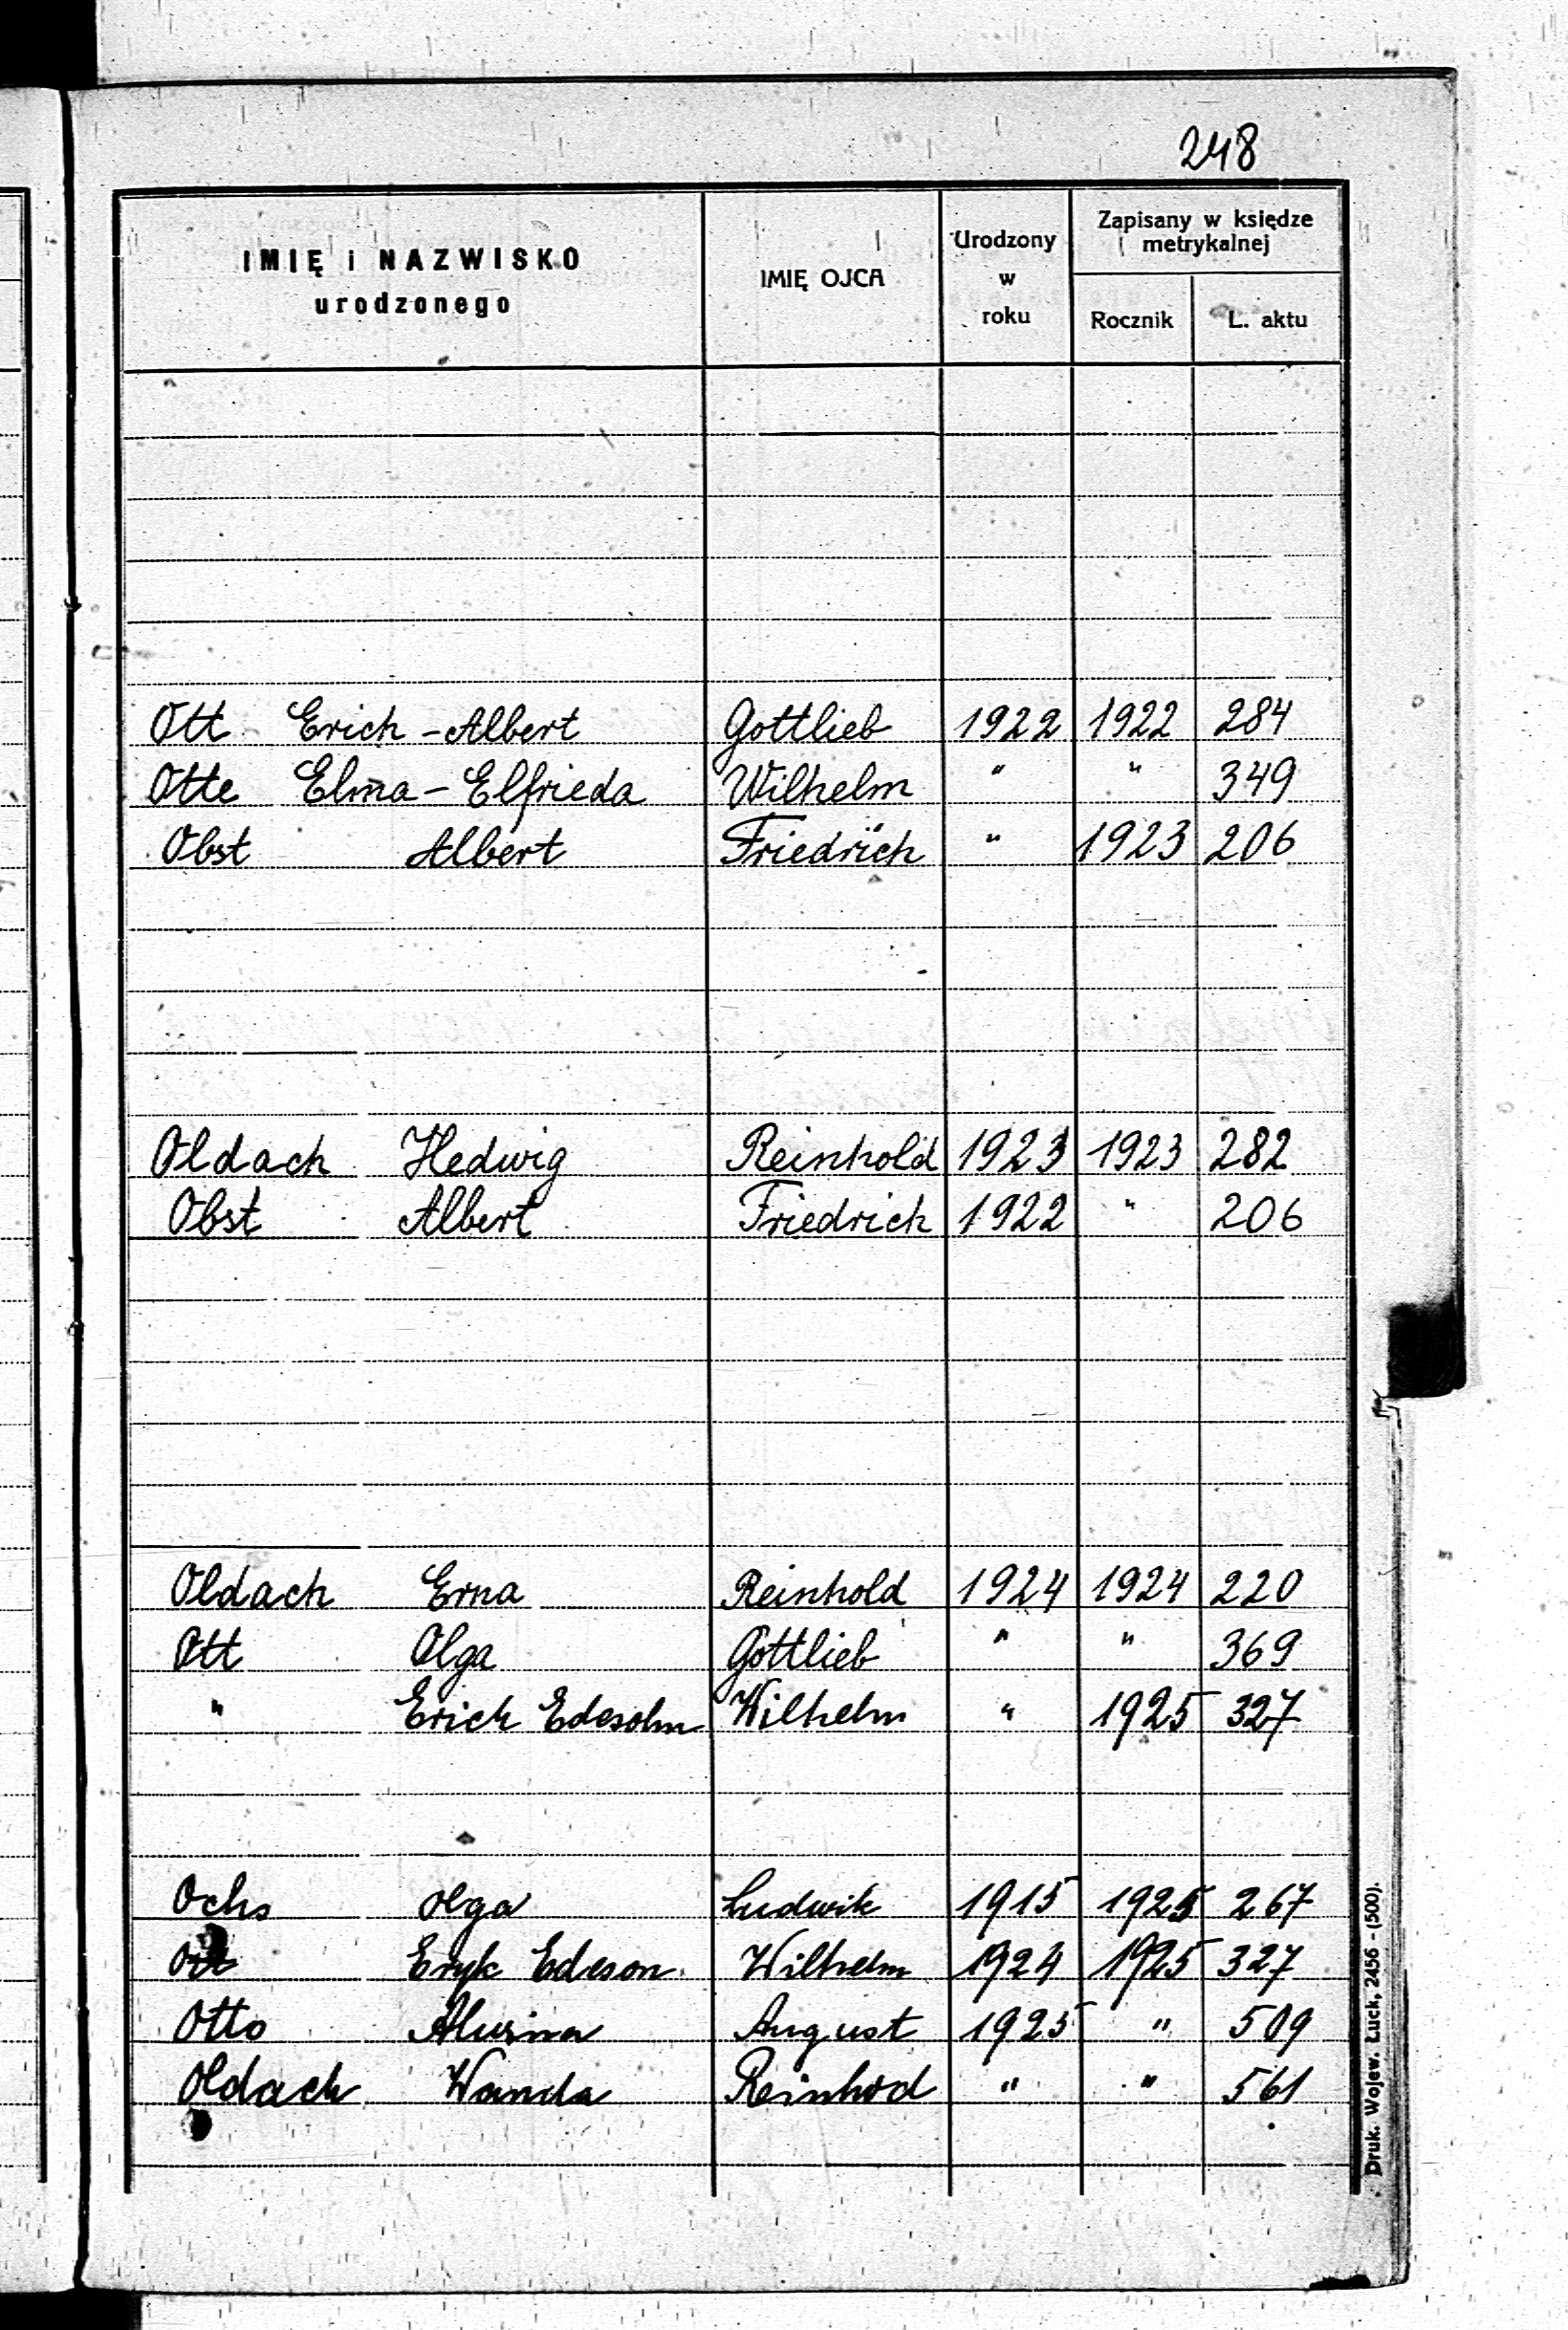 248
IMIĘ i NAZWISKO urodzonego | IMIĘ OJCA | Urodzony w roku | Zapisany w księdze metrykalnej
Rocznik | L. aktu
Ott Erich - Albert Gottlieb 1922 1922 284
Otte Elma - Elfrieda Wilhelm " " 349
Obst Albert Friedrich " 1923 206
Oldach Hedwig Reinhold 1923 1923 282
Obst Albert Friedrich 1922 " 206
Oldach Erna Reinhold 1924 1924 220
Ott Olga Gottlieb " " 369
" Erich Edesohn Wilhelm " 1925 327
Ochs Olga Ludwik 1915 1925 267
Ott Eryk Edeson Wilhelm 1924 1925 327
Otto August 1925 " 509
Oldach Wanda Reinhod " " 561
Druk. Wojew. Łuck, 2456 - (500).